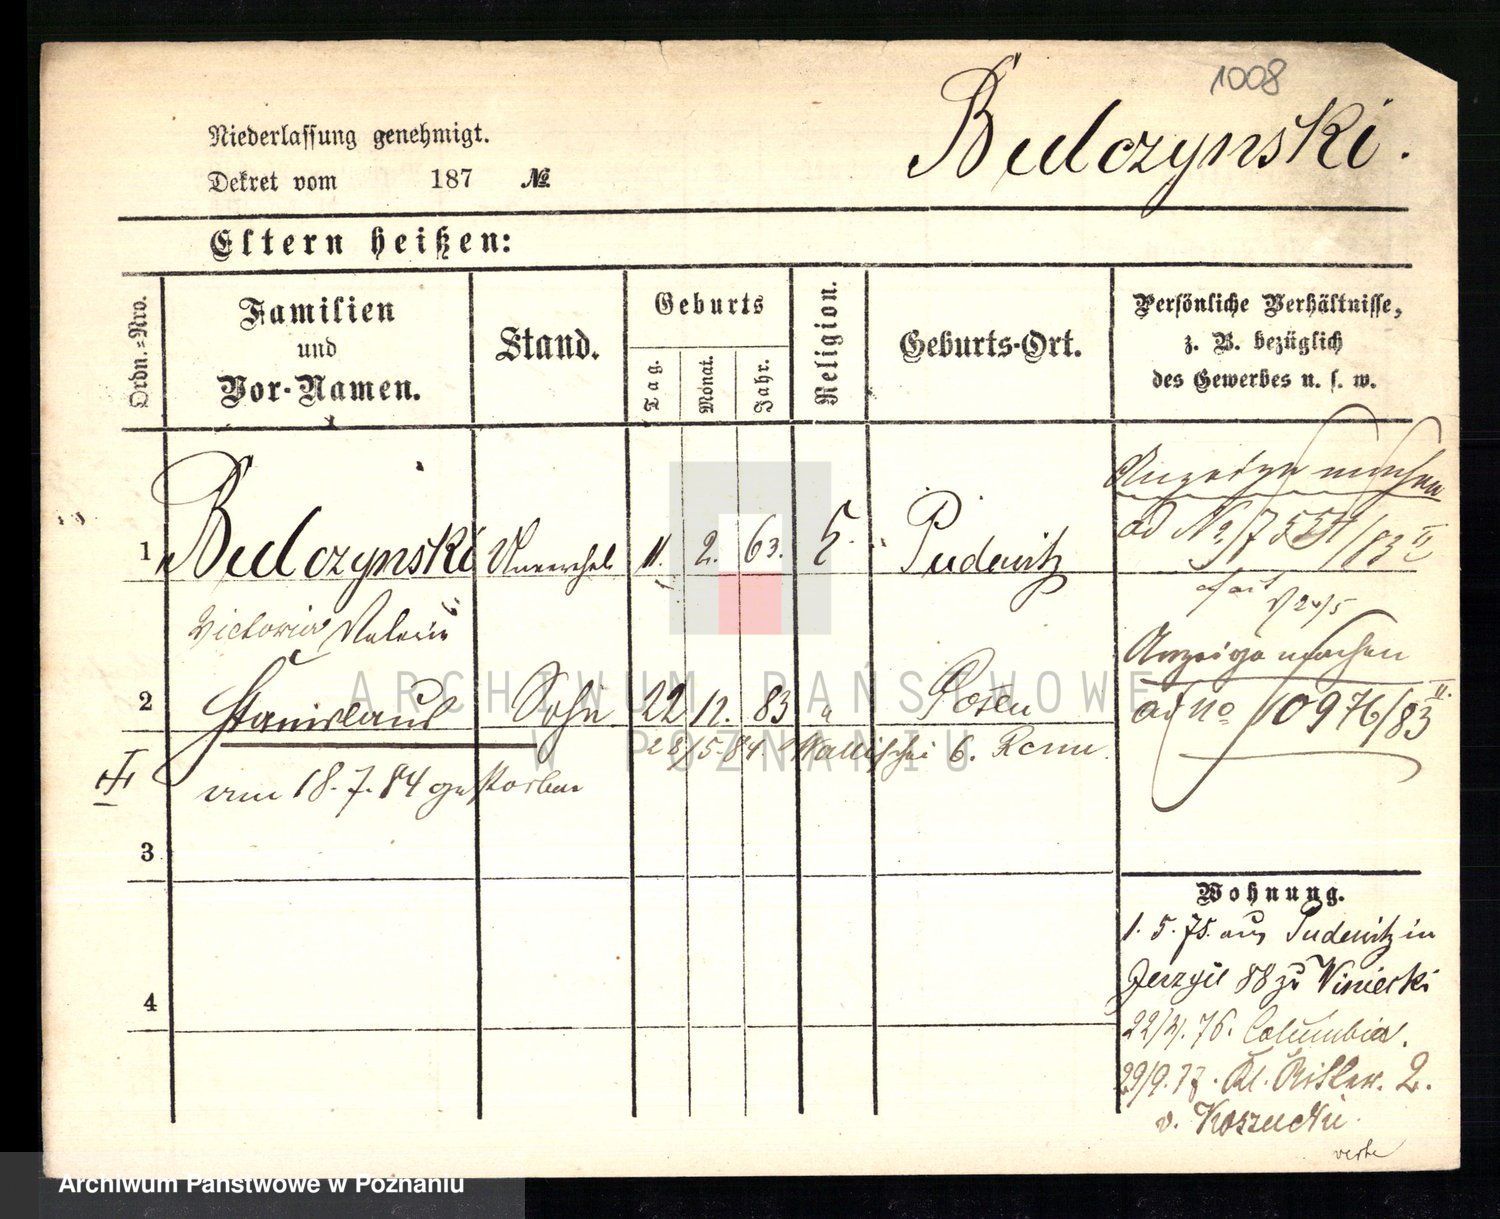 1008
Bulczynski.
Niederlassung genehmigt.
Dekret vom 187 №
Eltern heißen:
Ordn.-Nro.
Familien
und
Vor-Namen.
Stand.
Geburts
Tag.
Monat.
Jahr.
Religion.
Geburts-Ort.
Persönliche Verhältnisse,
z. B. bezüglich
des Gewerbes u. s. w.
Anzeige machen
ad No
1 Bulczynski Unverehel. 11. 2. 63. Pudewitz
Victoria Valerie
Anzeige machen
ad No 10976/83 II.
2 Stanislaus Sohn 22 12. 83 " Posen
28/5. 84. Wallischei 6.
am 18. 7. 84 gestorben
3
4
Wohnung.
1. 5. 75. aus Pudewitz in
Jerzyce 88 zu
Columbia.
29/9. 77. Kl. Ritter. 2.
v.
ARCHIWUM PAŃSTWOWE
W POZNANIU
Archiwum Państwowe w Poznaniu